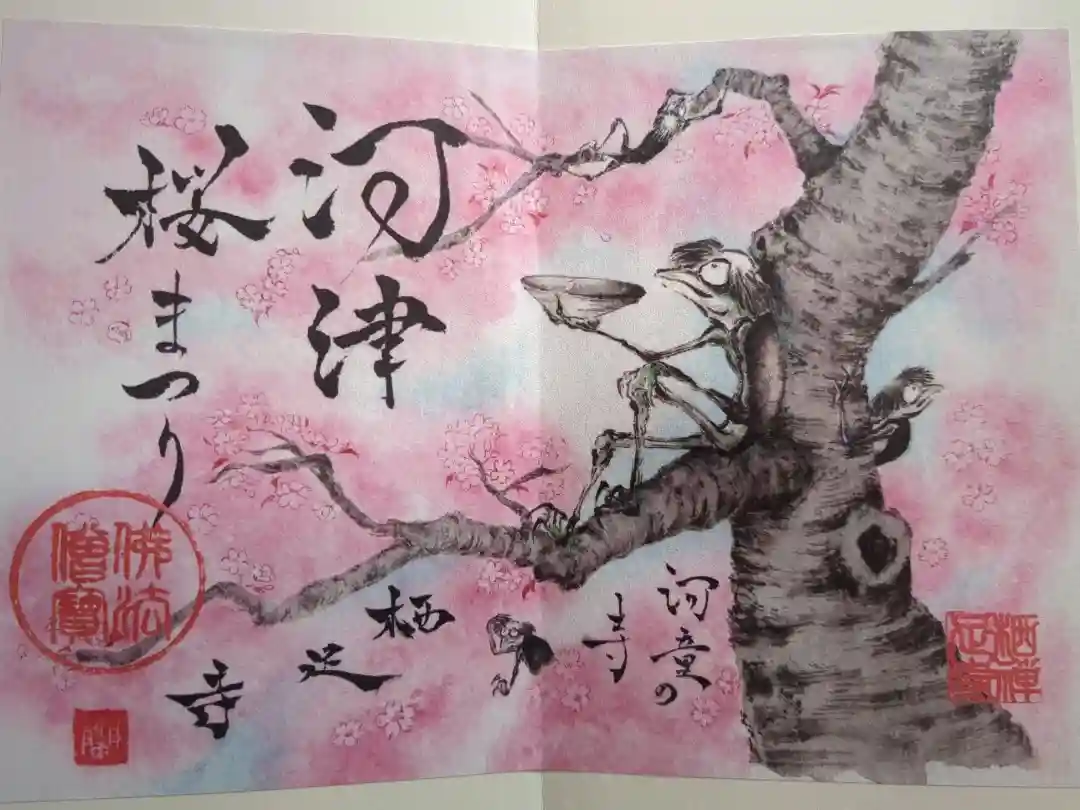 河津
桜まつり
河童の
寺
栖足寺
佛法
僧寶